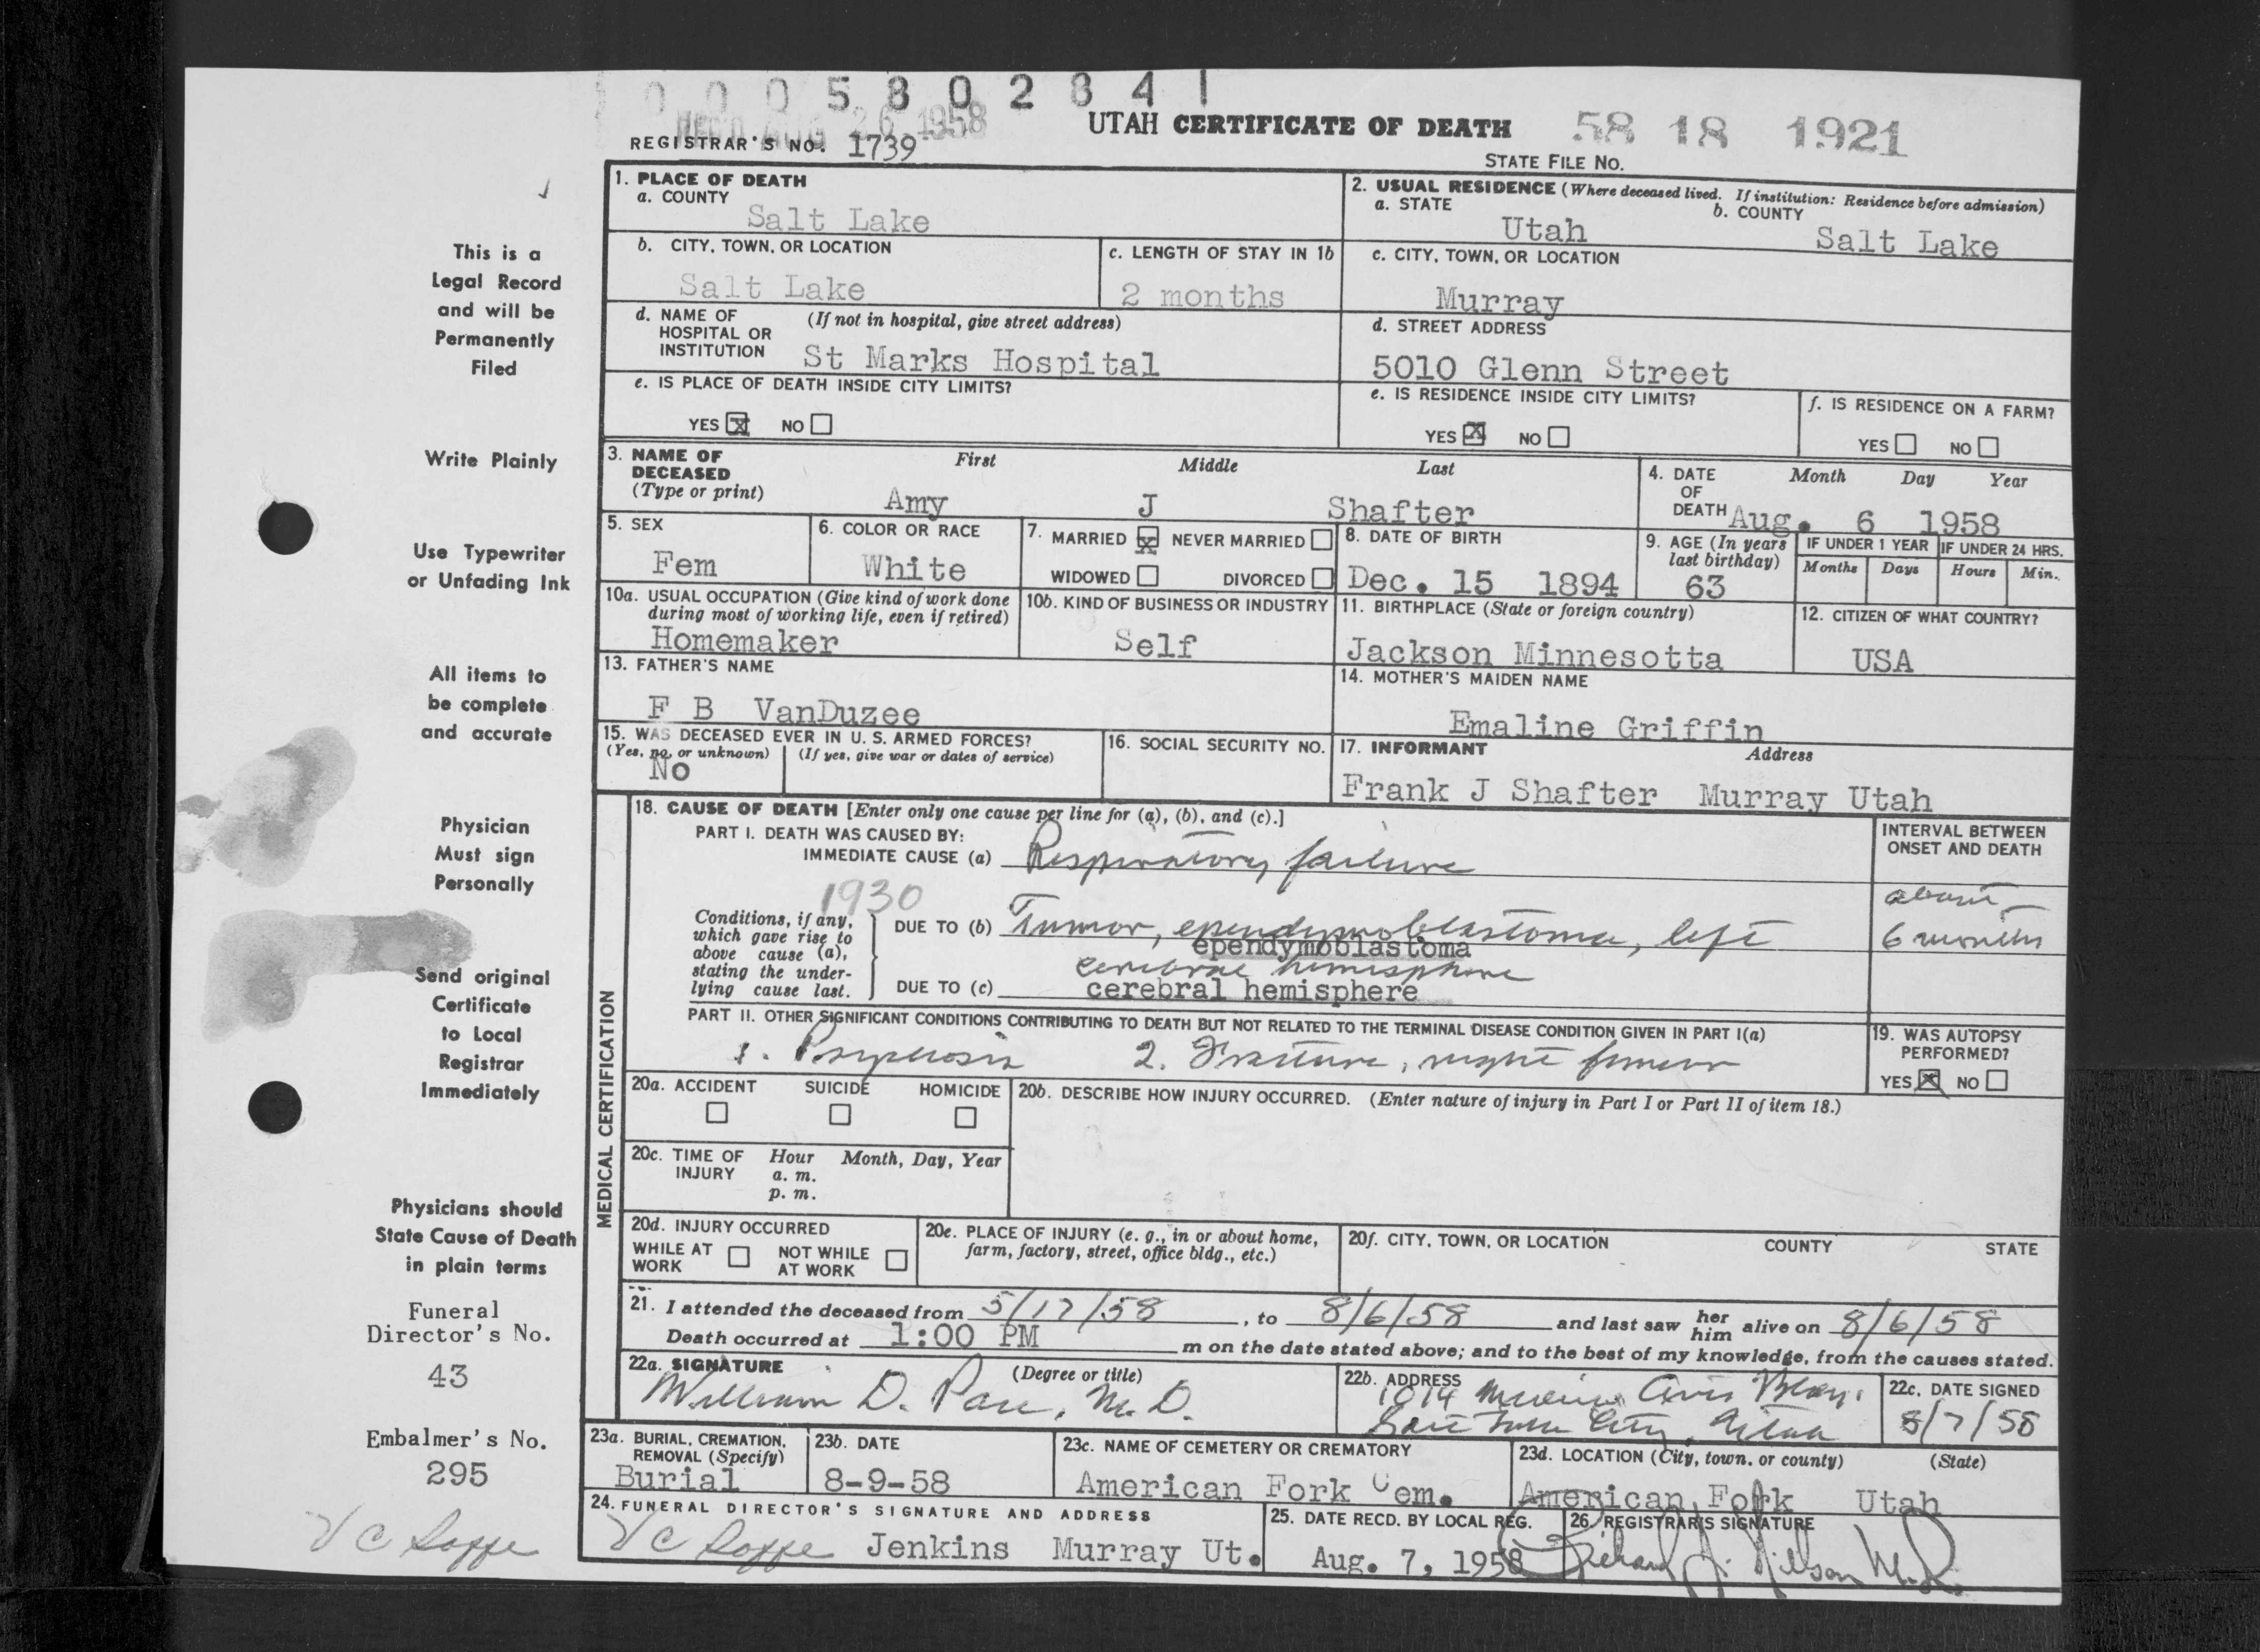 0 0 0 5 8 0 2 8 4 1
REC'D AUG 26 1958
UTAH CERTIFICATE OF DEATH
58 18 1921
REGISTRAR'S NO. 1739
STATE FILE NO.
This is a
Legal Record
and will be
Permanently
Filed
Write Plainly
Use Typewriter
or Unfading Ink
All items to
be complete
and accurate
Physician
Must sign
Personally
Send original
Certificate
to Local
Registrar
Immediately
Physicians should
State Cause of Death
in plain terms
Funeral
Director's No.
43
Embalmer's No.
295
1. PLACE OF DEATH
a. COUNTY
Salt Lake
2. USUAL RESIDENCE (Where deceased lived. If institution: Residence before admission)
a. STATE
Utah
b. COUNTY
Salt Lake
b. CITY, TOWN, OR LOCATION
Salt Lake
c. LENGTH OF STAY IN 1b
2 months
c. CITY, TOWN, OR LOCATION
Murray
d. NAME OF HOSPITAL OR INSTITUTION
(If not in hospital, give street address)
St Marks Hospital
d. STREET ADDRESS
5010 Glenn Street
e. IS PLACE OF DEATH INSIDE CITY LIMITS?
YES X NO
e. IS RESIDENCE INSIDE CITY LIMITS?
YES X NO
f. IS RESIDENCE ON A FARM?
YES NO
3. NAME OF DECEASED
(Type or print)
First Middle Last
Amy J Shafter
4. DATE OF DEATH
Month Day Year
Aug. 6 1958
5. SEX
Fem
6. COLOR OR RACE
White
7. MARRIED X NEVER MARRIED
WIDOWED DIVORCED
8. DATE OF BIRTH
Dec. 15 1894
9. AGE (In years last birthday)
63
IF UNDER 1 YEAR
Months Days
IF UNDER 24 HRS.
Hours Min.
10a. USUAL OCCUPATION (Give kind of work done
during most of working life, even if retired)
Homemaker
10b. KIND OF BUSINESS OR INDUSTRY
Self
11. BIRTHPLACE (State or foreign country)
Jackson Minnesotta
12. CITIZEN OF WHAT COUNTRY?
USA
13. FATHER'S NAME
F B VanDuzee
14. MOTHER'S MAIDEN NAME
Emaline Griffin
15. WAS DECEASED EVER IN U. S. ARMED FORCES?
(Yes, no, or unknown) (If yes, give war or dates of service)
No
16. SOCIAL SECURITY NO.
17. INFORMANT Address
Frank J Shafter Murray Utah
MEDICAL CERTIFICATION
18. CAUSE OF DEATH [Enter only one cause per line for (a), (b), and (c).]
PART I. DEATH WAS CAUSED BY:
IMMEDIATE CAUSE (a) Respiratory failure
INTERVAL BETWEEN
ONSET AND DEATH
1930
Conditions, if any,
which gave rise to
above cause (a),
stating the under-
lying cause last.
DUE TO (b) Tumor, ependymoblastoma, left
ependymoblastoma
about
6 months
cerebral hemisphere
DUE TO (c) cerebral hemisphere
PART II. OTHER SIGNIFICANT CONDITIONS CONTRIBUTING TO DEATH BUT NOT RELATED TO THE TERMINAL DISEASE CONDITION GIVEN IN PART I(a)
1. Psychosis 2. Fracture, right femur
19. WAS AUTOPSY
PERFORMED?
YES X NO
20a. ACCIDENT SUICIDE HOMICIDE
20b. DESCRIBE HOW INJURY OCCURRED. (Enter nature of injury in Part I or Part II of item 18.)
20c. TIME OF INJURY
Hour Month, Day, Year
a. m.
p. m.
20d. INJURY OCCURRED
WHILE AT WORK NOT WHILE AT WORK
20e. PLACE OF INJURY (e. g., in or about home,
farm, factory, street, office bldg., etc.)
20f. CITY, TOWN, OR LOCATION COUNTY STATE
21. I attended the deceased from 5/17/58, to 8/6/58 and last saw her him alive on 8/6/58
Death occurred at 1:00 PM m on the date stated above; and to the best of my knowledge, from the causes stated.
22a. SIGNATURE (Degree or title)
William D. Pace, M. D.
22b. ADDRESS
1014
City, Utah
22c. DATE SIGNED
8/7/58
23a. BURIAL, CREMATION,
REMOVAL (Specify)
Burial
23b. DATE
8-9-58
23c. NAME OF CEMETERY OR CREMATORY
American Fork Cem.
23d. LOCATION (City, town, or county) (State)
American Fork Utah
24. FUNERAL DIRECTOR'S SIGNATURE AND ADDRESS
Jenkins Murray Ut.
25. DATE RECD. BY LOCAL REG.
Aug. 7, 1958
26. REGISTRAR'S SIGNATURE